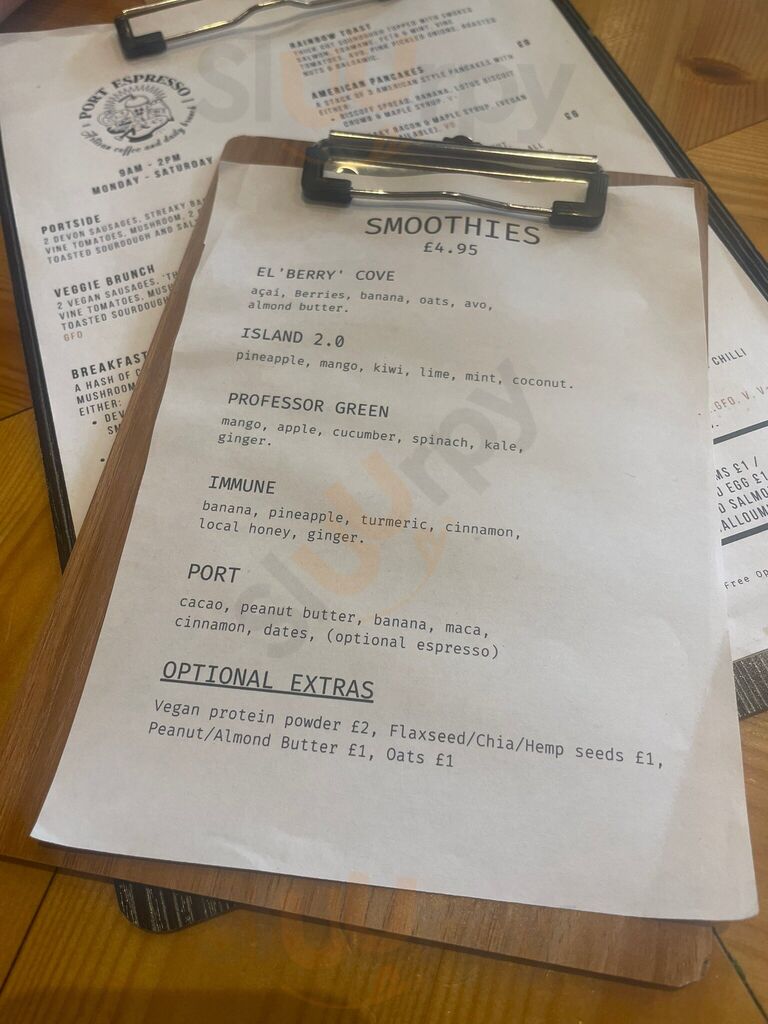 RAINBOW TOAST
THICK CUT SOURDOUGH TOPPED WITH SMOKED
SALMON, EDAMAME, FETA & MINT, VINE
TOMATOES, AVO, PINK PICKLED ONIONS, ROASTED
NUTS & BALSAMIC.
AMERICAN PANCAKES
A STACK OF 3 AMERICAN STYLE PANCAKES WITH
EITHER:
• BISCOFF SPREAD, BANANA, LOTUS BISCUIT
CRUMB & MAPLE SYRUP. V
BACON & MAPLE SYRUP. (VEGAN
PORT ESPRESSO
Artisan coffee and daily brunch
9AM - 2PM
MONDAY - SATURDAY
PORTSIDE
2 DEVON SAUSAGES, STREAKY
VINE TOMATOES, MUSHROOM, 2
TOASTED SOURDOUGH AND
VEGGIE BRUNCH
2 VEGAN SAUSAGES,
VINE TOMATOES,
TOASTED SOURDOUGH
GFO
BREAKFAST
A HASH OF
MUSHROOM
EITHER:
SMOOTHIES
£4.95
EL'BERRY' COVE
açaí, Berries, banana, oats, avo,
almond butter.
ISLAND 2.0
pineapple, mango, kiwi, lime, mint, coconut.
PROFESSOR GREEN
mango, apple, cucumber, spinach, kale,
ginger.
IMMUNE
banana, pineapple, turmeric, cinnamon,
local honey, ginger.
PORT
cacao, peanut butter, banana, maca,
cinnamon, dates, (optional espresso)
OPTIONAL EXTRAS
Vegan protein powder £2, Flaxseed/Chia/Hemp seeds £1,
Peanut/Almond Butter £1, Oats £1
CHILLI
GFO, V,
£1 /
EGG £1
Free
slurpy
slurpy